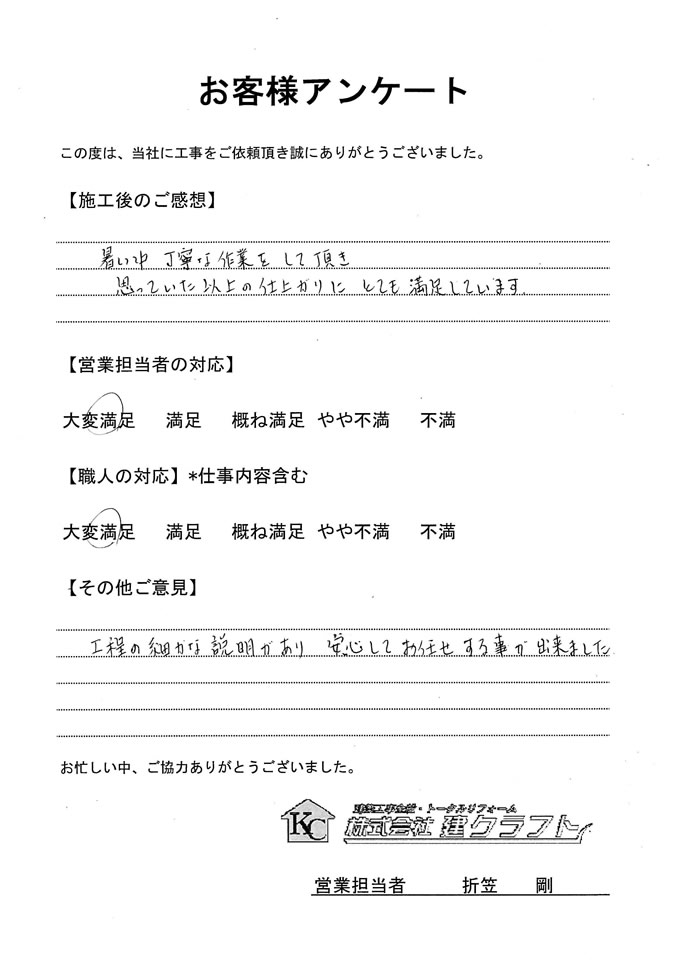 お客様アンケート
この度は、当社に工事をご依頼頂き誠にありがとうございました。
【施工後のご感想】
暑い中 丁寧な作業をして頂き
思っていた以上の仕上がりに とても満足しています.
【営業担当者の対応】
大変満足 満足 概ね満足 やや不満 不満
【職人の対応】*仕事内容含む
大変満足 満足 概ね満足 やや不満 不満
【その他ご意見】
工程の細かな説明があり 安心してお任せする事が出来ました
お忙しい中、ご協力ありがとうございました。
建築工事全般・トータルリフォーム
KC 株式会社 建クラフト
営業担当者 折笠 剛